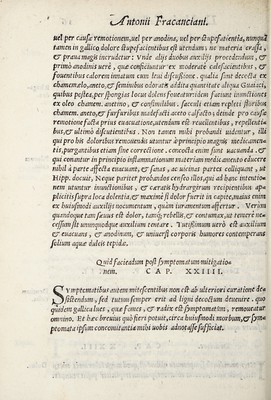 Antonii Fracanciani.
uel per causæ remotionem, uel per anodina, uel per stupefacientia, nunquã
tamen in gallico dolore stupefacientibus est utendum: ne materia crassa,
& praua magis incrudetur: Vnde alijs duobus auxilijs procedendum, &
primo anodinis uerò, quæ conficiuntur ex moderatè calefacientibus, &
fouentibus calorem innatum cum leui discussione. qualia sunt decocta ex
chamæmelo, aneto, & similibus coloratis addita quantitate aliqua Guaiaci,
quibus postea, per spongias locus dolens foueatur. eiusdem sunt inunctiones
ex oleo chamem. anetino, & consimilibus. sacculi etiam repleti floribus
chamem. aneto, & furfuribus madefacti aceto calfacto. deinde pro causæ
remotione facta prius euacuatione, utendum est resudantibus, repellenti‑
bus, & ultimò discutientibus. Non tamen mihi probandi uidentur, illi
qui pro his doloribus remouendis utuntur à principio magnis medicamen‑
tis, purgantibus etiam sine correctione. concocta enim sunt uacuanda. &
qui conantur in principio inflammationum materiam medicamento educere
nihil à parte affecta euacuant, & sanas, ac uicinas partes colliquant, ut
Hipp. docuit. Neque pariter probandus censeo illos, qui ad hanc intentio‑
nem utuntur inunctionibus, & ceratis hydrargirum recipientibus ap‑
plicitis supra loca dolentia, & maximè si dolor fuerit in capite, maius enim
ex huiusmodi auxilijs nocumentum, quam iuuamentum affertur. Verùm
quandoque tam sæuus est dolor, tamq; rebellis, & contumax, ut teneri ne‑
cessum sit unumquodque auxilium tentare. Tutissimum uerò est auxilium
& euacuans, & anodinum, & uniuersi corporis humores contemperans
solium aquæ dulcis tepidæ.
Quid faciendum post symptomatum mitigatio‑
nem. CAP. XXIIII.
Symptomatibus autem mitescentibus non est ab ulteriori curatione de‑
sistendum, sed tutum semper erit ad ligni decoctum deuenire, quo
quidem gallica lues, quæ fomes, & radix est symptomatum, remoueatur
omnino. Et hæc breuius quò fieri potuit, circa huiusmodi morbum, & sym‑
ptomata ipsum concomitantia mihi uobis adnotasse sufficiat.